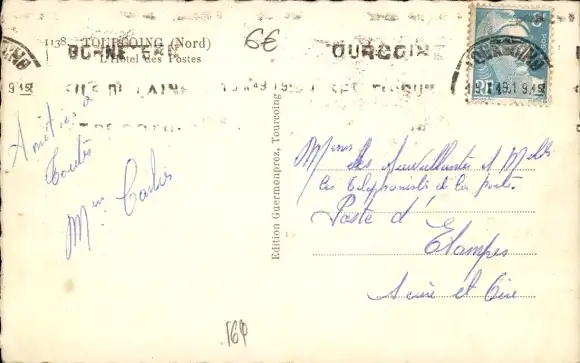 1138. TOURCOING (Nord)
L'Hôtel des Postes
6€
BONNE
OURCOING
TOURCOING
Amitiés à
toutes
Mme Carlier
Edition Guermouprez, Tourcoing
des Surveillantes et
les téléphonistes de la poste.
Poste d'
Etampes
Seine et Oise
164